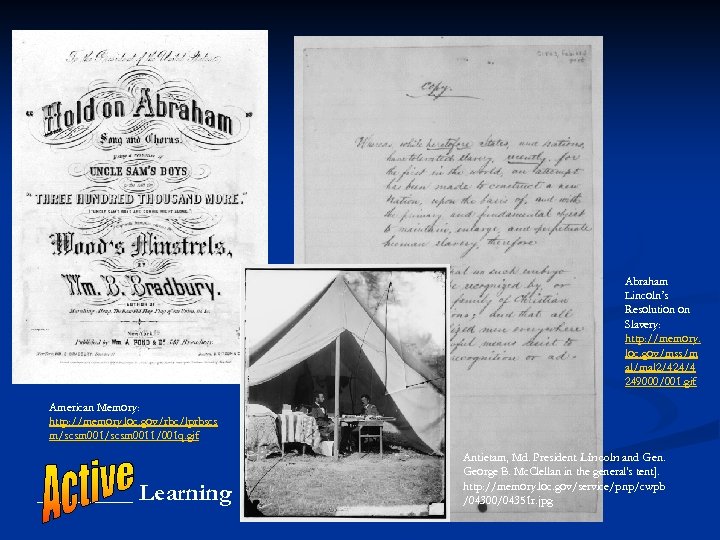 To the President of the United States.
"Hold on Abraham"
Song and Chorus.
UNCLE SAM'S BOYS
"THREE HUNDRED THOUSAND MORE."
Wood's Minstrels,
BY
Wm. B. Bradbury.
AUTHOR OF
New York
Published by Wm. A. POND & Co. 547 Broadway.
Copy.
Whereas, while heretofore States, and Nations,
have tolerated slavery, recently, for
the first in the world, an attempt
has been made to construct a new
Nation, upon the basis of, and with
the primary and fundamental object
to maintain, enlarge, and perpetuate
human slavery, therefore
that no such embryo
be recognized by, or
family of Christian
and that all
ized men everywhere
ful means resist to
recognition or ad-
Abraham
Lincoln's
Resolution on
Slavery:
http://memory.
loc.gov/mss/m
al/mal2/424/4
249000/001.gif
American Memory:
http://memory.loc.gov/rbc/lprbscs
m/scsm001/scsm0011/001q.gif
Antietam, Md. President Lincoln and Gen.
George B. McClellan in the general's tent].
http://memory.loc.gov/service/pnp/cwpb
/04300/04351r.jpg
Active
Learning